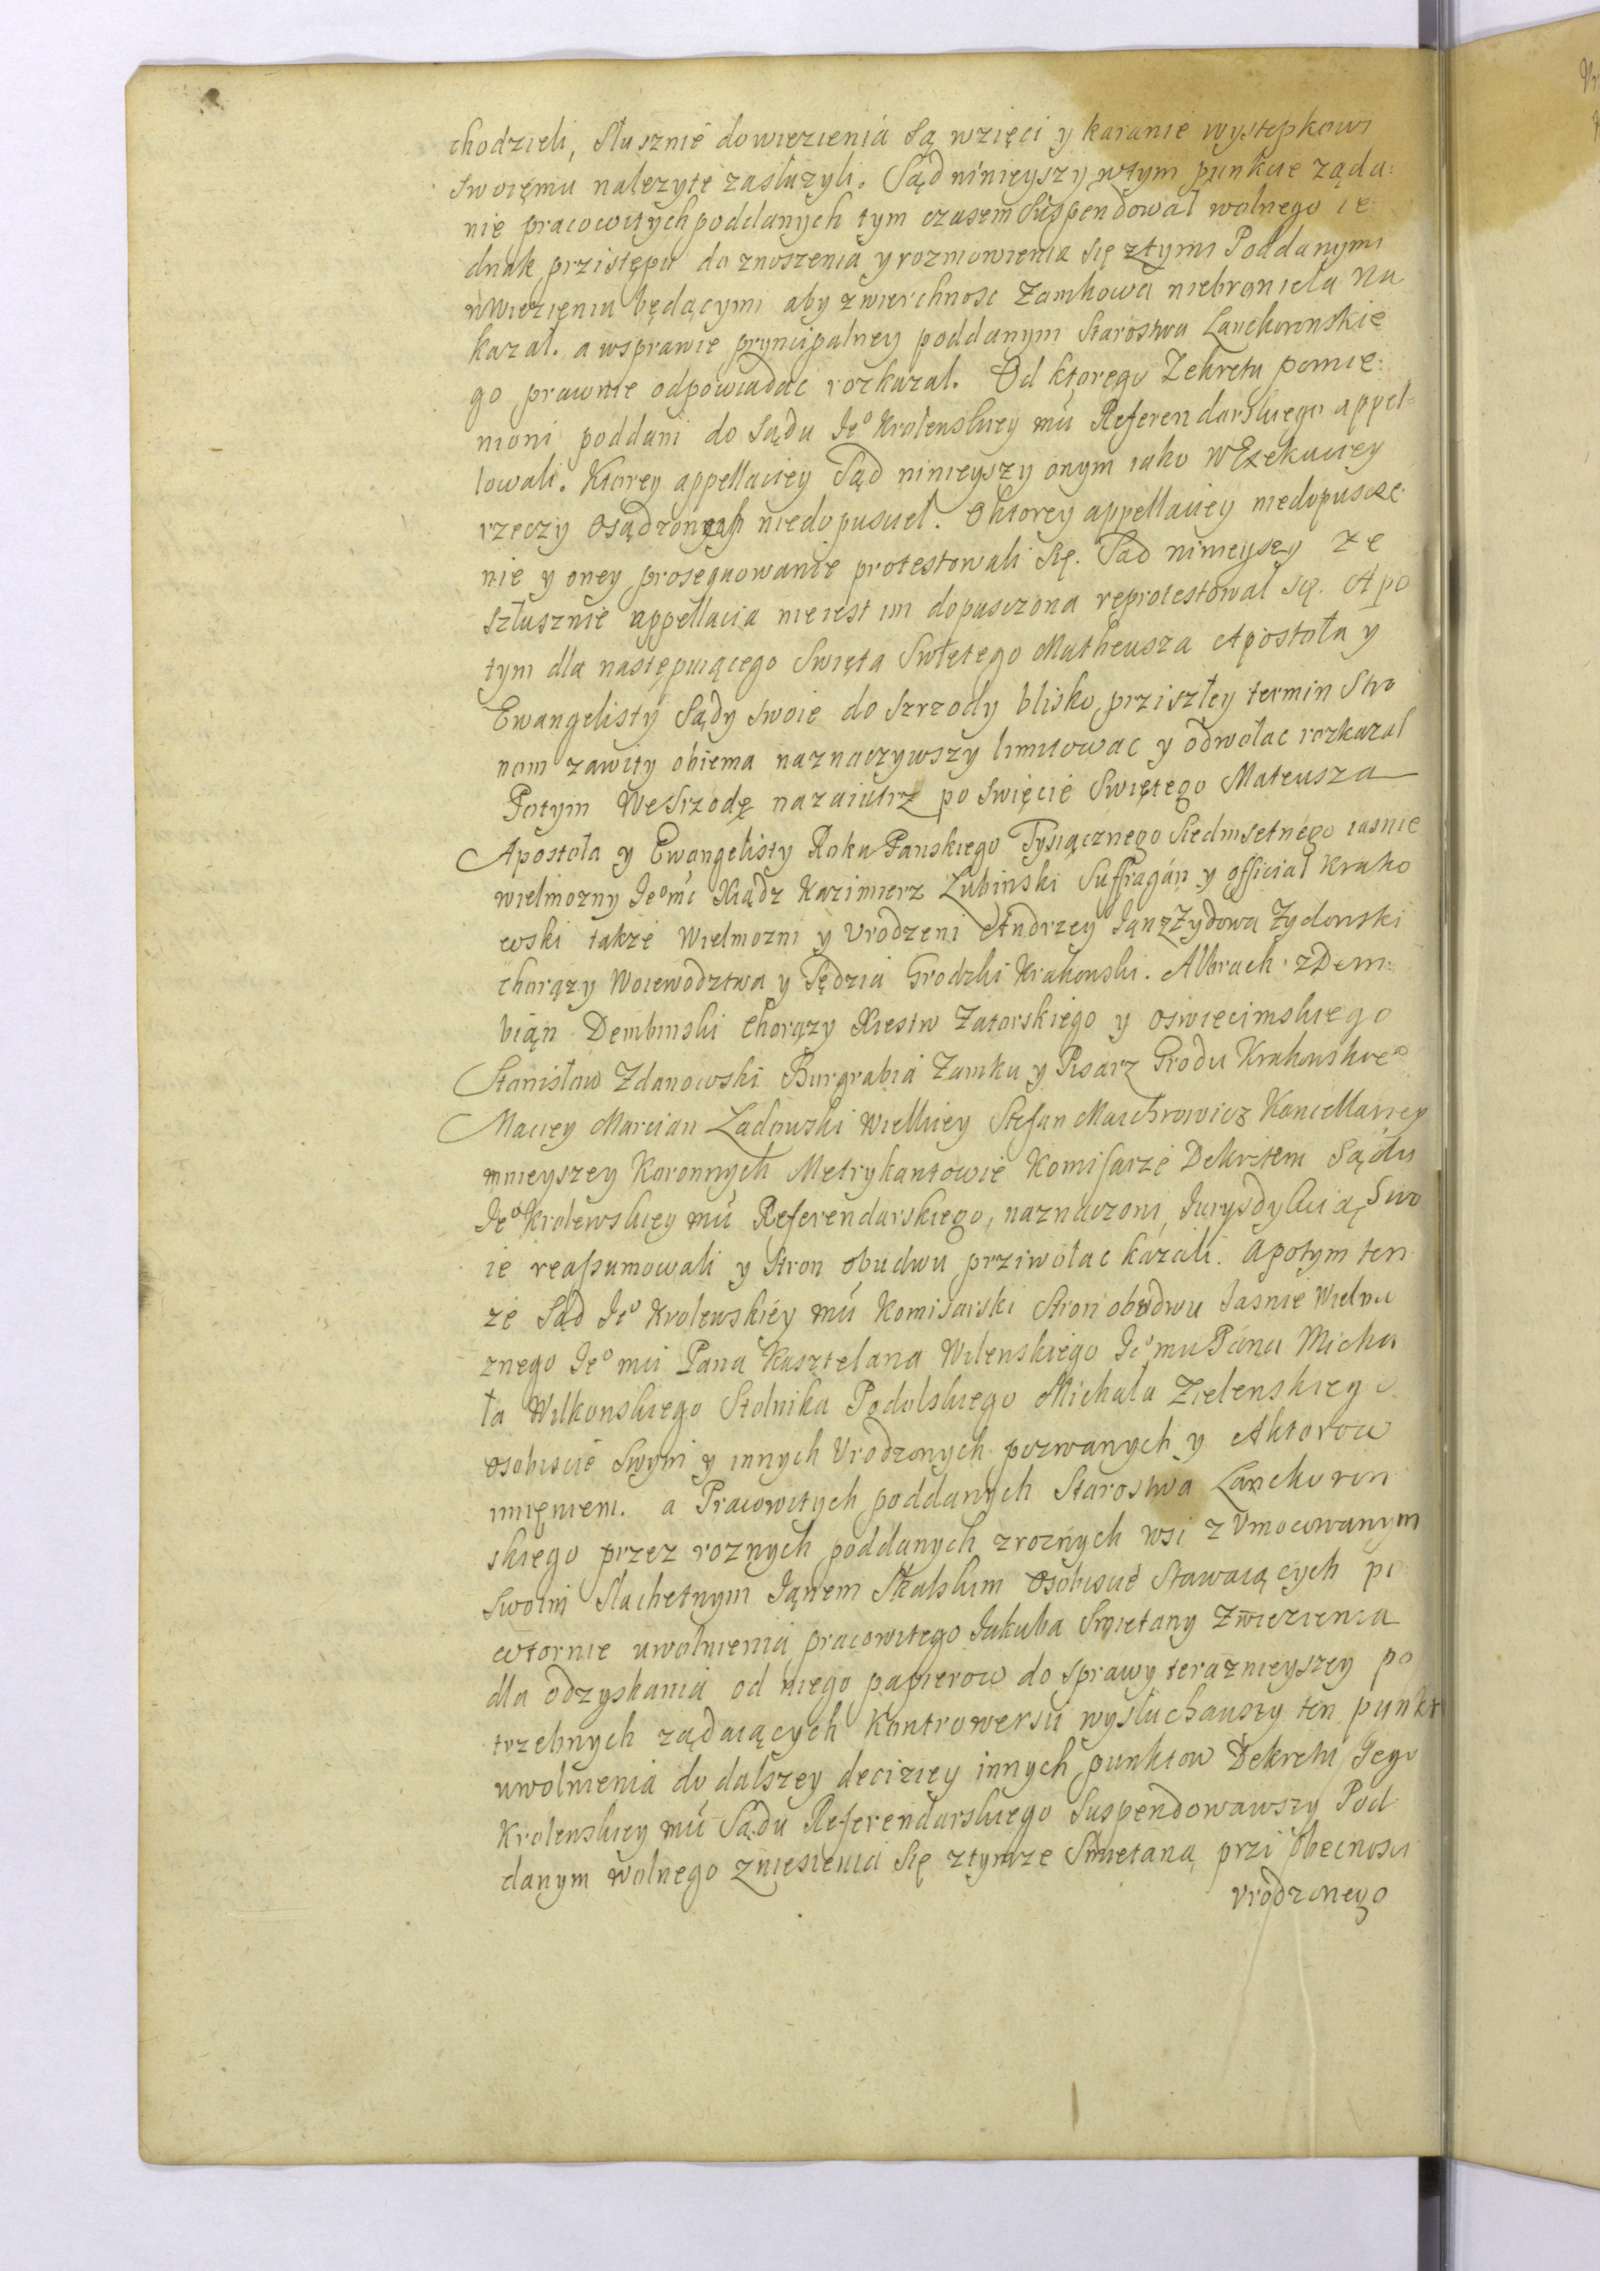 chodzieli, Słusznie dowiezienia są wzięci y karanie występkowi
swoięmu nalezyte zasłużyli. Sąd ninieyszy wtym punkcie ząda:
nie pracowitych poddanych tym czasem Suspendował wolnego ie
dnak przistępu do znoszenia y rozmowienia się ztymi Poddanymi
wWiezieniu będącymi aby zwierchnosc Zamkowa niebroniela Na
kazał. a wsprawie pryncipalney poddanym Starostwa Lanckoronskie
go prawnie odpowiadac rozkazał. Od ktorego Dekretu pomie:
nioni poddani do Sądu Jeº Krolewskiey mci Referendarskiego appel=
lowali. Ktorey appellaciey Sąd ninieyszy onym iako wExekuciey
rzeczy osądzonych niedopuscieł. O ktorey appellaciey niedopuscze
nie y oney prosequowanie protestowali się. Sąd ninieyszy ze
szłusznie appellacia nieiest im dopusczona reprotestował się. A po
tym dla następuiącego Swięta Swiętego Matheusza Apostoła y
Ewangelisty Sądy swoie do Szrzody blisko prziszłey termin Stro
nom zawity obiema naznaczywszy limitowac y odwołac rozkazał
Potym WeSrzodę nazaiutrz po swięcie Swiętego Mateusza
Apostoła y Ewangelisty Roku Panskiego Tysiącznego Siedmsetnego iasnie
wielmozny Jeºmc Xiądz Kazimierz Łubinski Suffragán y official Krako
wski także Wielmozni y Vrodzeni Andrzey Jan zZydowa Zydowski
Chorązy Woiewodztwa y Sędzia Grodzki Krakowski. Albracht zDem:
bian Dembinski Chorązy Xiestw Zatorskiego y oswięcimskiego
Stanisław Zdanowski Burgrabia Zamku y Pisarz Grodu Krakowskieº
Maciey Marcian Ladowski Wielkiey Stefan Maichrowicz Kancellariey
mnieyszey Koronnych Metrykantowie Komisarze Dekretem Sądu
Jeº Krolewskiey mci Referendarskiego, naznaczoni, Jurysdykcią Swo
ie reassumowali y Stron obudwu prziwołac kazali. a potym ten
ze Sąd Jeº Krolewskiey mci Komisarski Stron obudwu Jasnie Wielmo
znego Jeº mci Pana Kasztelana Wilenskiego Jeº mci Pana Micha
ła Wilkonskiego Stolnika Podolskiego Michała Zielenskiego
osobiscie Swym y innych Vrodzonych pozwanych y Aktorow
imięniem. a Pracowitych poddanych Starostwa Lanckoron
skiego przez roznych poddanych zroznych wsi z Vmocowanym
Swoim Slachetnym Janem Skalskim osobiscie Stawaiących po
wtornie uwolnienia pracowitego Jakuba Smietany zwiezienia
dla odzyskania od niego papierow do sprawy terazniejszey po
trzebnych ządaiących Kontrowersii wysłuchawszy ten punkt
uwolnienia do dalszey deciziey innych punktow Dekretu Jego
Krolewskiey mci Sądu Referendarskiego Suspendowawszy Pod
danym wolnego zniesienia się ztymze Smietaną przi obecnosci
vrodzonego